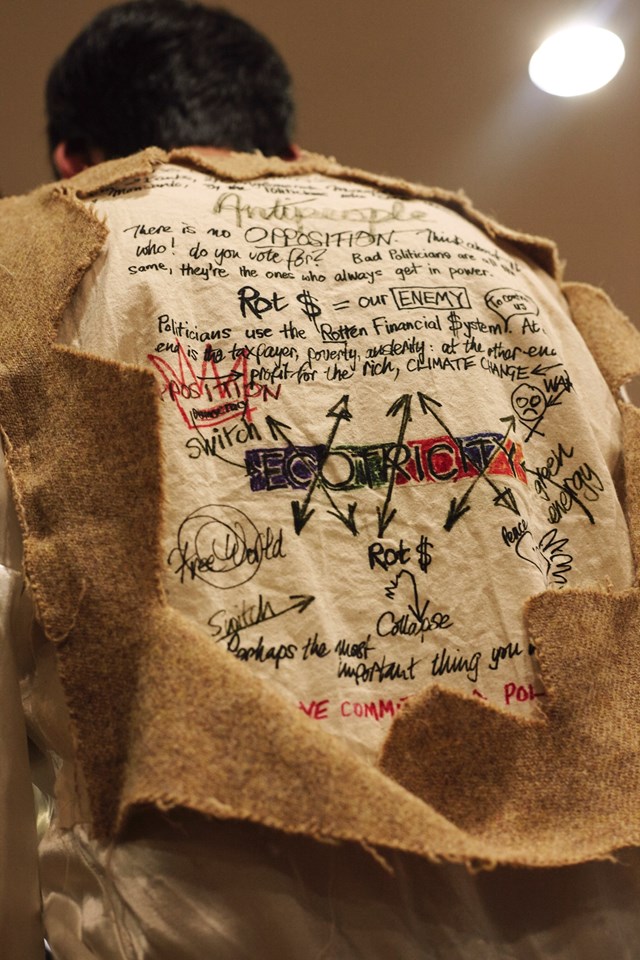 Antipeople
There is no OPPOSITION. Think about
who! do you vote for? Bad Politicians are all
same, they're the ones who always get in power.
Rot $ = our ENEMY
Politicians use the Rotten Financial $ystem. At
end is the taxpayer, poverty, austerity: at the other end
profit for the rich, CLIMATE CHANGE
WAR
Switch
ECOTRICITY
green
energy
Free World
Rot $
Peace
Switch
Collapse
Perhaps the most
important thing you
VE COMMI POL